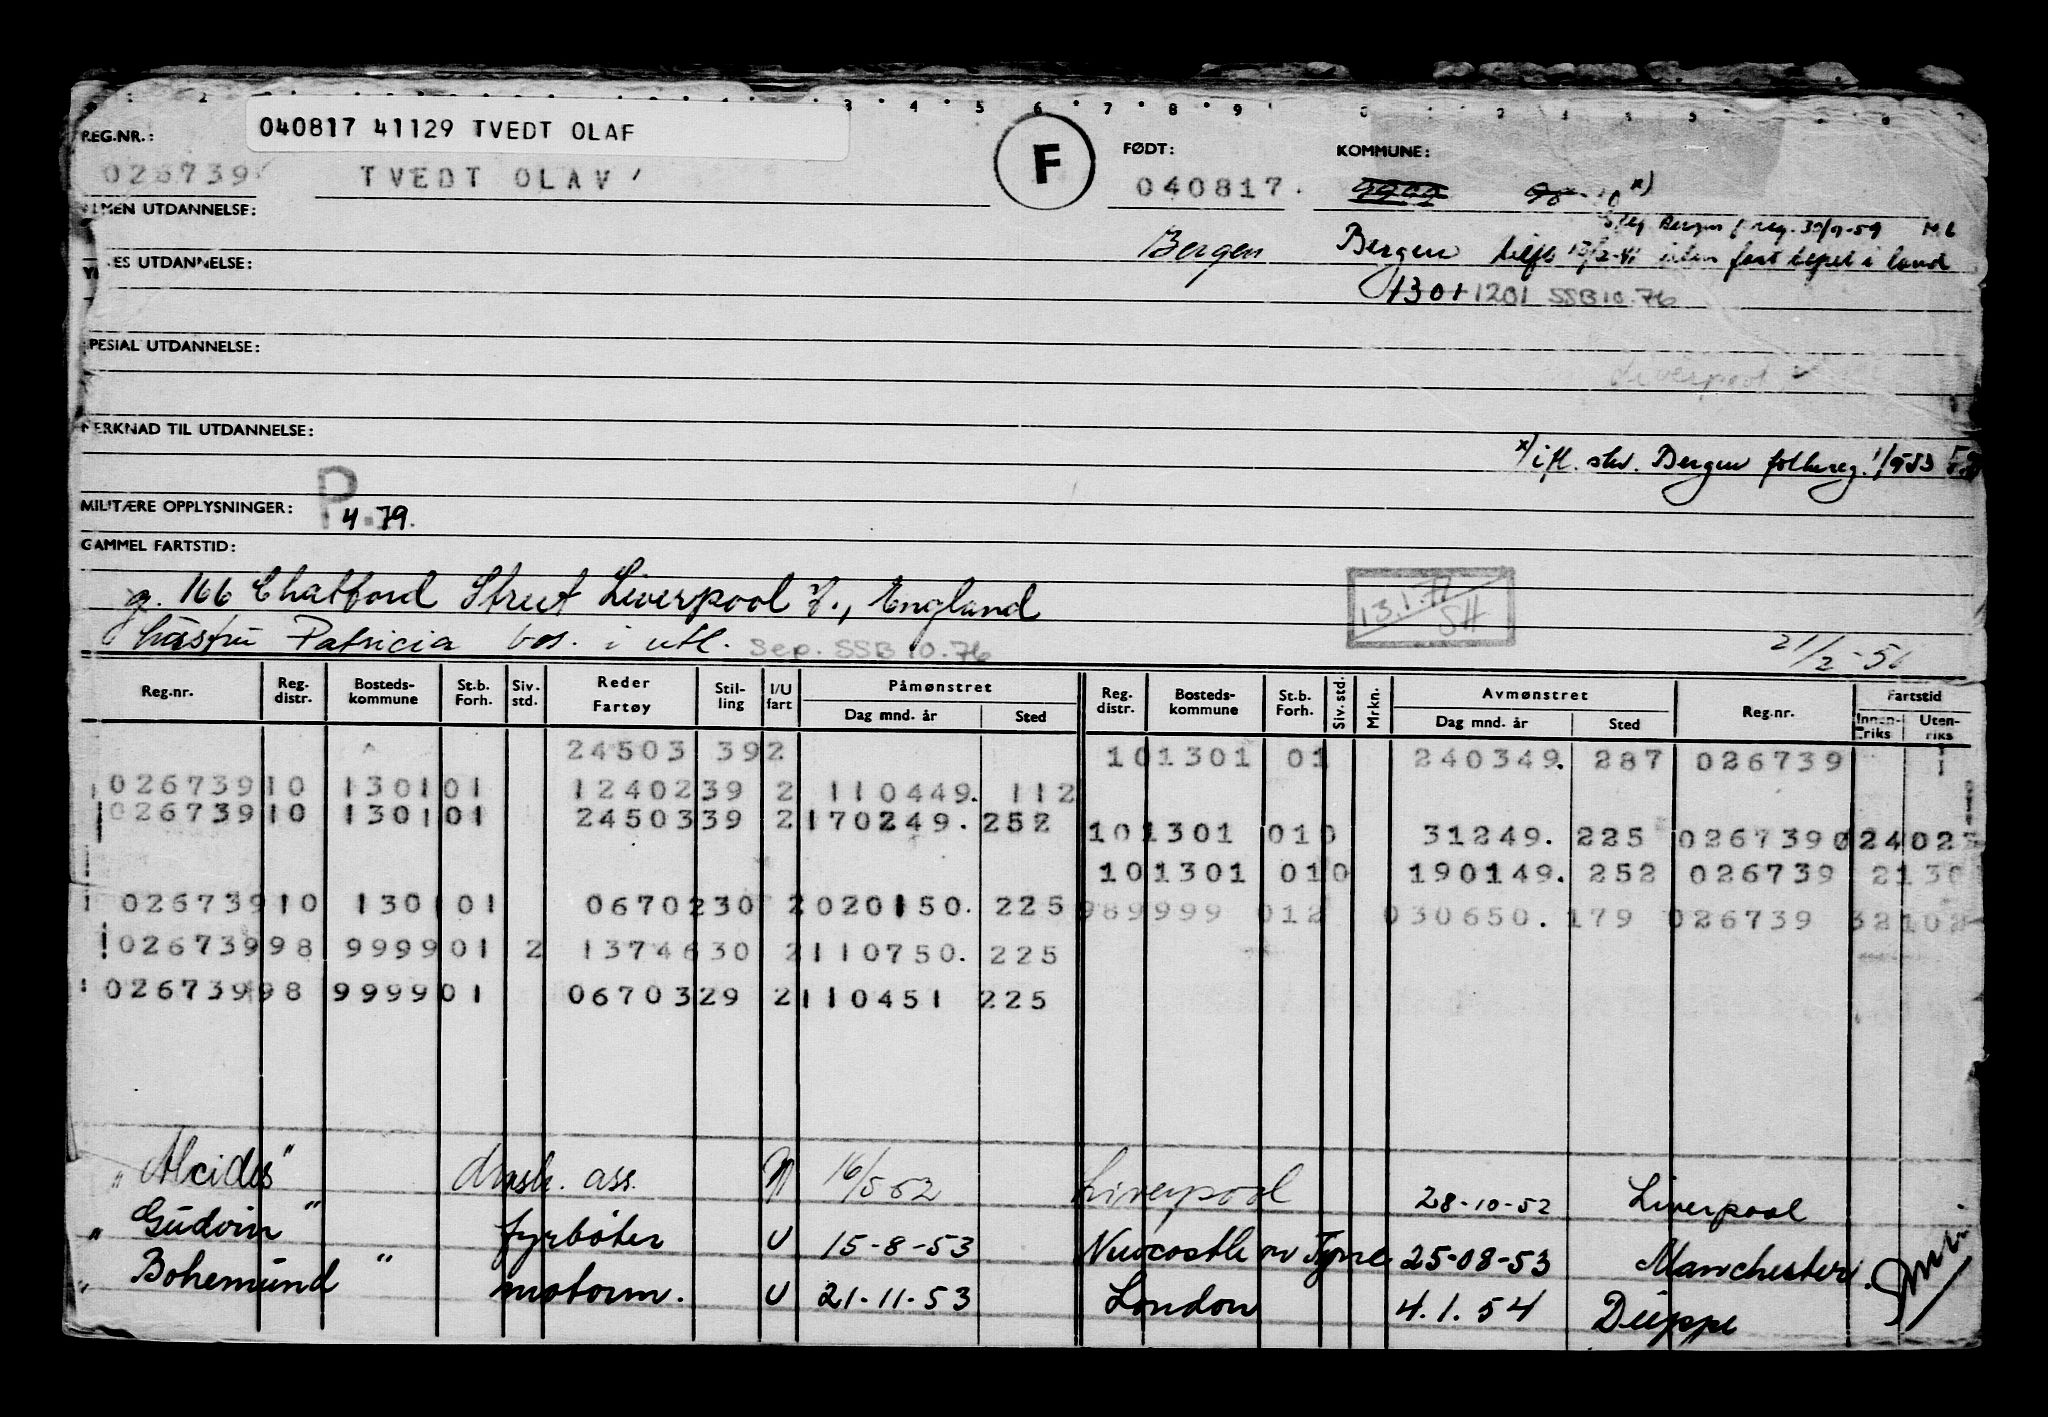 040817 41129 TVEDT OLAF
REG.NR.:
FØDT:
KOMMUNE:
026739
TVEDT OLAV
F
040817.
9999
98
10 x)
UTDANNELSE:
Bergen
Bergen
UTDANNELSE:
1301 1201 SSB 10.76
SPESIAL UTDANNELSE:
Liverpool
MERKNAD TIL UTDANNELSE:
x) ifl. skv. Bergen folkereg.
MILITÆRE OPPLYSNINGER:
P
4.79.
GAMMEL FARTSTID:
g. 166 Chatford Street Liverpool 7., England
hustru Patricia bos. i utl. Sep. SSB 10.76
13.1.77
SH
Reg.nr. Reg. distr. Bosteds-kommune St.b. Forh. Siv. std. Reder Fartøy Stil-ling I/U fart Påmønstret Dag mnd. år Sted Reg. distr. Bosteds-kommune St.b. Forh. Siv. std. Mrkn. Avmønstret Dag mnd. år Sted Reg.nr. Fartstid Innen-riks Uten-riks
24503 392 101301 01 240349. 287 026739
026739 10 1301 01 12402 39 2 110449. 112
026739 10 1301 01 24503 39 2 170249. 252
101301 010 31249. 225 026739 024 023
101301 010 190149. 252 026739
026739 10 1301 01 06702 30 2 020150. 225
989999 012 030650. 179 026739
026739 98 9999 01 2 13746 30 2 110750. 225
026739 98 9999 01 06703 29 2 110451 225
"Alcides" mask. ass. 16/5 52 Liverpool 28-10-52 Liverpool
"Gudvin" fyrbøter U 15-8-53 Newcastle on Tyne 25-08-53 Manchester
"Bohemund" motorm. U 21.11.53 London 4.1.54 Dieppe